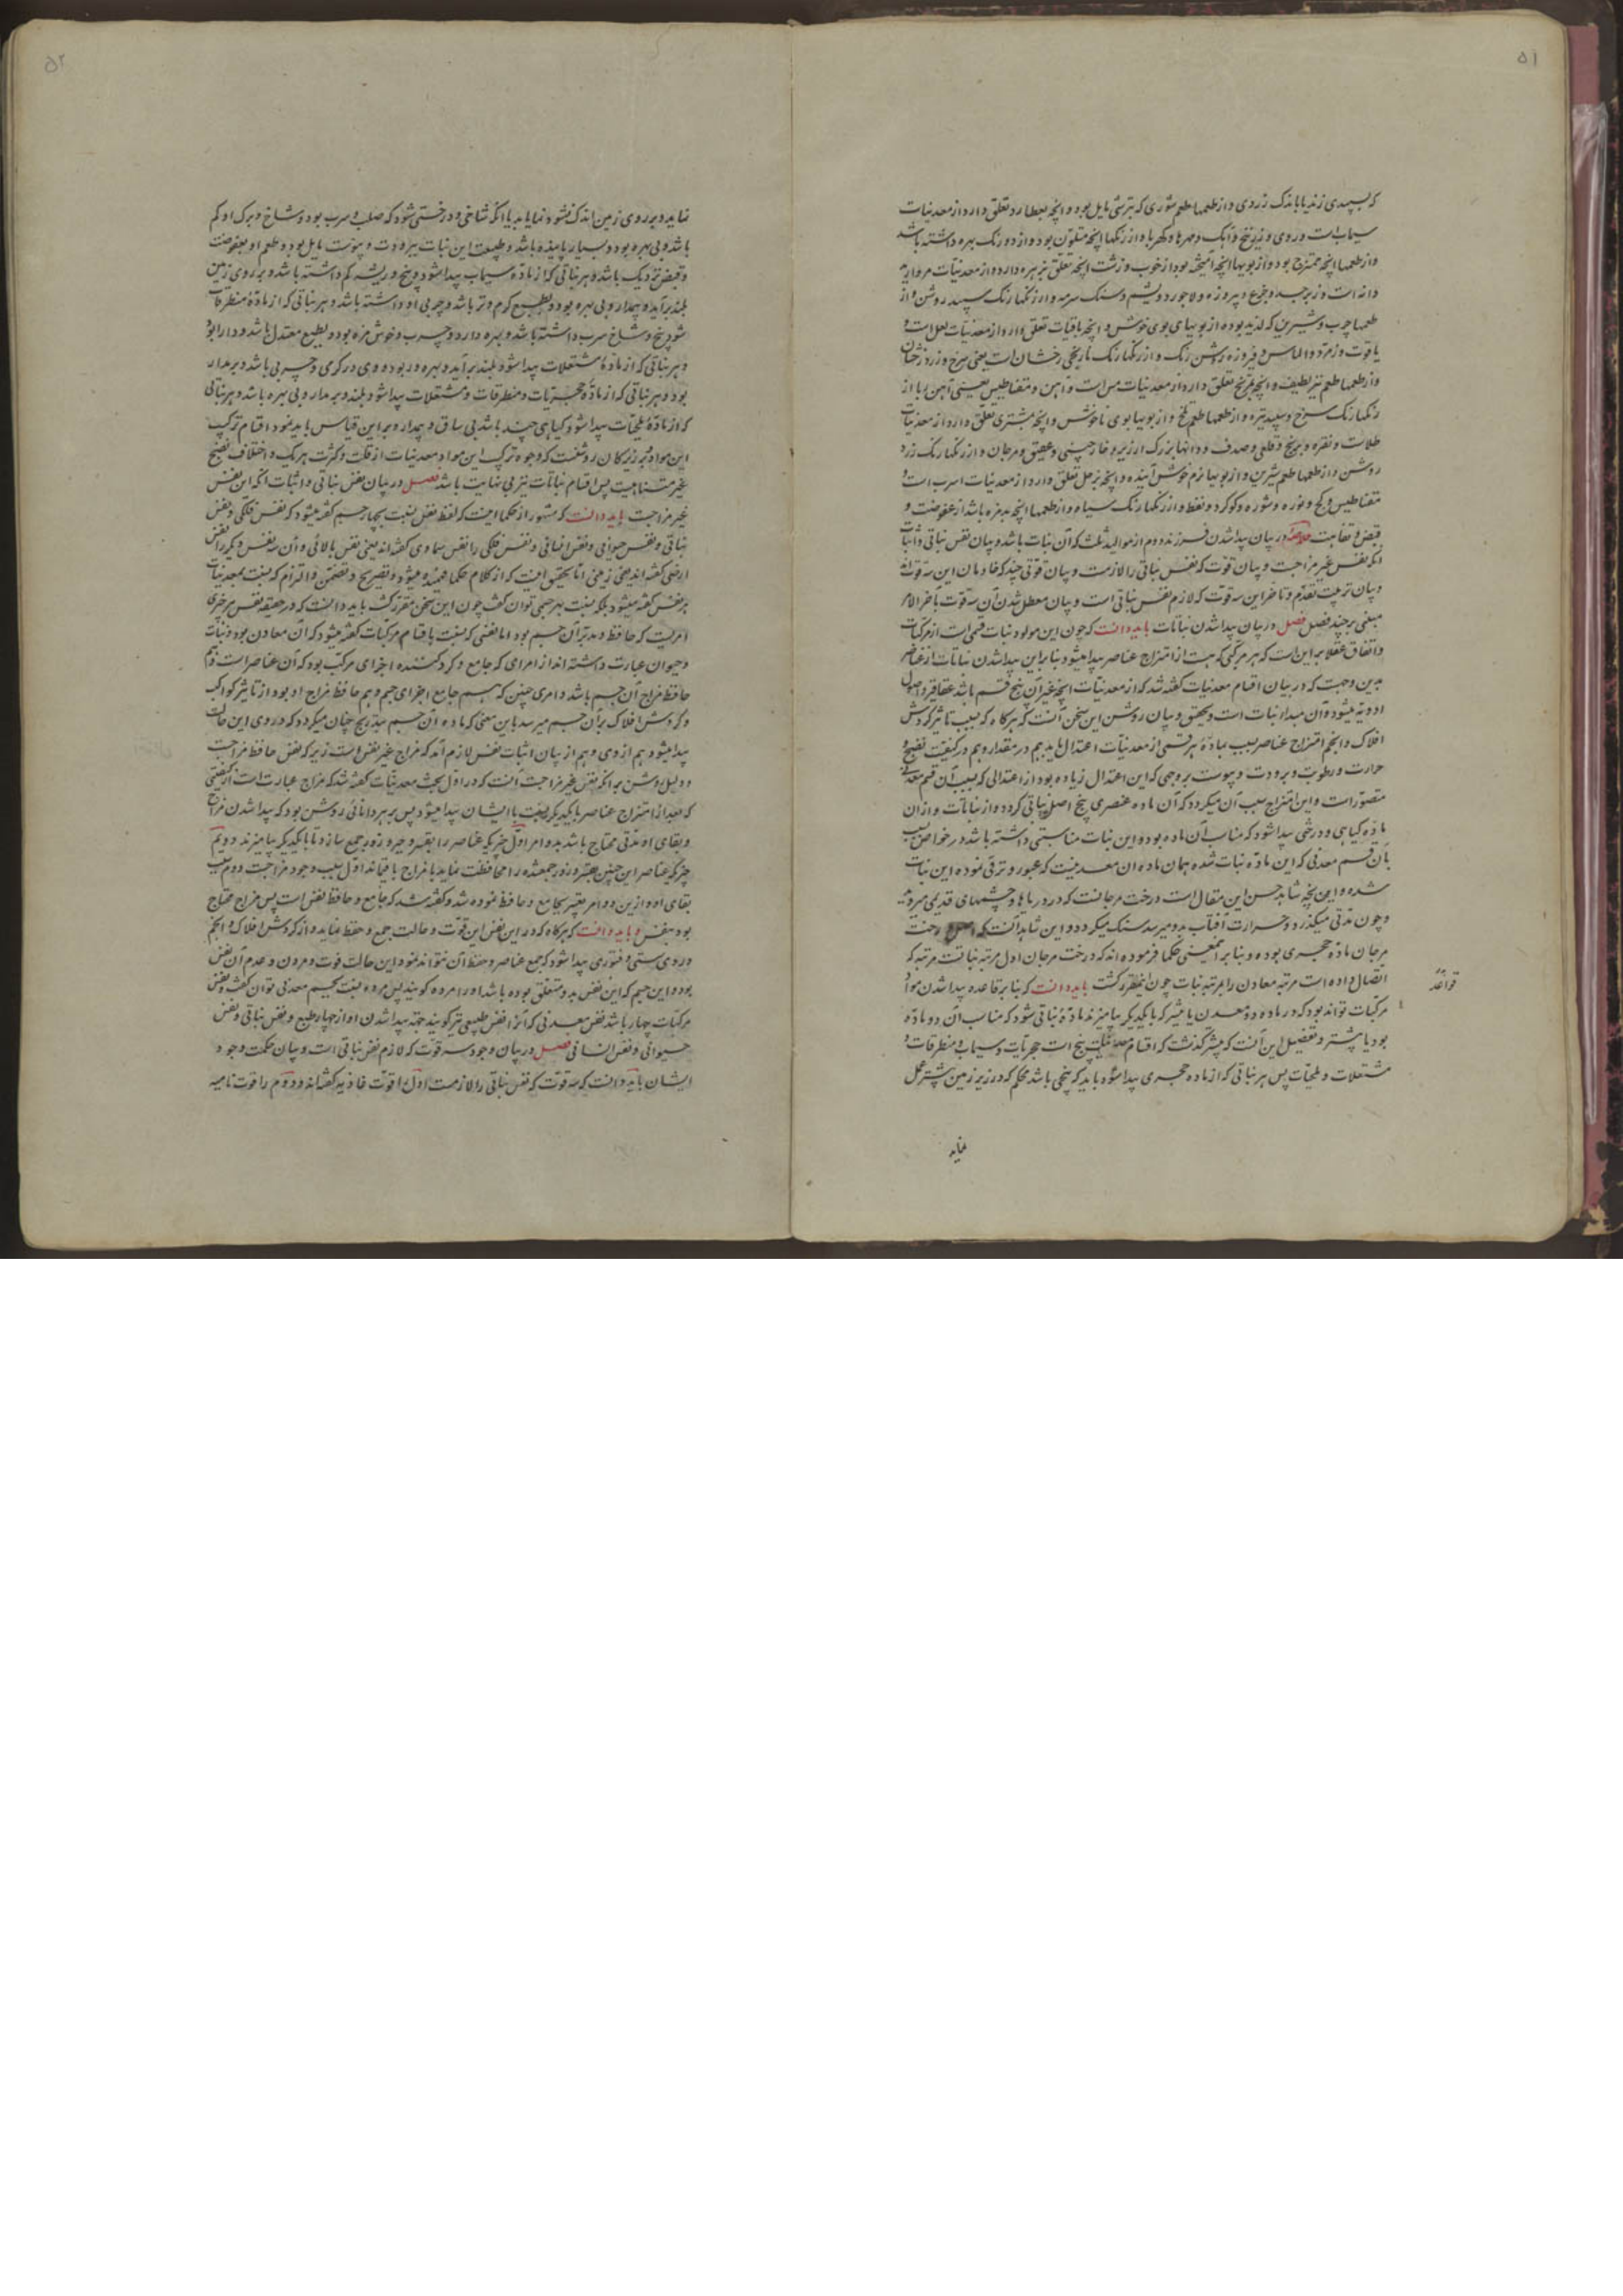 ۵۱
که بسپیدی زند یا باندک زردی و از طعمها طعم شوری که بترشی مایل بود و انچه بعطارد تعلق دارد از معدنیات
سیماب است و روی و زرنیخ و آبک و مهرها و کهربا و از رنکها انچه متلون بود و از دو رنک بهره داشته باشد
و از طعمها انچه ممتزج بود و از بویها انچه آمیخته بود از خوب و زشت انچه تعلق بزهره دارد از معدنیات مروارید
دانه است و زبرجد و جزع و پیروزه و لاجورد و یشم و سنک سرمه و از رنکها رنک سپید روشن و از
طعمها چرب و شیرین که لذیذ بود و از بویهای بوی خوش و انچه بافتاب تعلق دارد از معدنیات لعل است و
یاقوت و زمرد و الماس و فیروزه روشن رنک و از رنکها رنک نارنجی رخشان است یعنی سرخ و زرد رخشان
و از طعمها طعم تیز لطیف و انچه بمریخ تعلق دارد از معدنیات مس است و آهن و مقناطیس یعنی آهن ربا و از
رنکها رنک سرخ و سپید تیره و از طعمها طعم تلخ و از بویها بوی ناخوش و انچه بمشتری تعلق دارد از معدنیات
طلاست و نقره و برنج و قلعی و صدف و دانها بزرک ارزیر و خارچینی و عقیق و مرجان و از رنکها رنک زرد
روشن و از طعمها طعم شیرین و از بویها نرم خوش آینده و انچه بزحل تعلق دارد از معدنیات اسرب است و
مقناطیس و کچ و نوره و شوره و کوکرد و نفط و از رنکها رنک سیاه و از طعمها انچه بدمزه باشد از عفوصت و
قبض و تفاهت خلاصه در بیان پیدا شدن فرزند دوم از موالید ثلثه که آن نبات باشد و بیان نفس نباتی و اثبات
آنکه نفس غیر مزاجست و بیان قوت که نفس نباتی را لازمست و بیان قوتی چند که خادمان این سه قوت اند
و بیان ترتیب تقدم و تاخر این سه قوت که لازم نفس نباتی است و بیان معطل شدن آن سه قوت باخر الامر
مبنی بر چند فصل فصل در بیان پیدا شدن نباتات باید دانست که چون این مولود نبات قسمی است از مرکبات
و اتفاق عقلا بر این است که هر مرکبی که هست از امتزاج عناصر پیدا میشود بنابر این پیدا شدن نباتات از عناصر
بدین وجهست که در بیان اقسام معدنیات کفته شد که از معدنیات انچه غیر آن پنج قسم باشد عقاقیر و اصول
ادویه میشود و آن مبدا نبات است و تحقیق و بیان روشن این سخن آنست که هرکاه که بسبب تاثیر کردش
افلاک و انجم امتزاج عناصر بسبب ماده هر قسمی از معدنیات اعتدال یابد هم در مقدار و هم در کیفیت نضج و
حرارت و رطوبت و برودت و یبوست بر وجهی که این اعتدال زیاده بود از اعتدالی که بسبب آن قسم معدنی
متصور است و این امتزاج سبب آن میکردد که آن ماده عنصری بیخ اصل نباتی کردد و از نباتات و از ان
ماده کیاهی و درختی پیدا شود که مناسب آن ماده بود و این نبات مناسبتی داشته باشد در خواص بسبب
بآن قسم معدنی که این ماده نبات شده همان ماده ان معدنیت که عبور و ترقی نموده این نبات
شده و این نتیجه شاهد حسن این مقال است درخت مرجانست که در دریاها و چشمهای قدیمی میروید
و چون مدتی میکذرد و حرارت آفتاب بدو میرسد سنک میکردد و این شاهد آنست که اصل درخت
مرجان ماده حجری بوده و بنا بر این معنی حکما فرموده اند که درخت مرجان اول مرتبه نباتست مرتبه که
اتصال داده است مرتبه معادن را بمرتبه نبات چون اینمقرر کشت باید دانست که بنا بر قاعده پیدا شدن مواد
مرکبات تواند بود که در ماده دو معدن یا بیشتر که با یکدیکر بیامیزند ماده نباتی شود که مناسب آن دو ماده
بود یا بیشتر و تفصیل این آنست که پیشتر کذشت که اقسام معدنیات پنج است حجریات و سیماب و منطرقات و
مشتعلات و ملحیات پس هر نباتی که از ماده حجری پیدا شود باید که بیخی باشد محکم که در زیر زمین بیشتر عمل
قواعد
نماید
۵۲
نماید و بر روی زمین اندک نشو و نما یابد یا انکه شاخی و درختی شود که صلب و سرب بود و شاخ و برک او کم
باشد و بی بهره بود و بسیار پاینده باشد و طبیعت این نبات ببرودت و یبوست مایل بود و طعم او بعفوصت
و قبض نزدیک باشد و هر نباتی که از ماده سیماب پیدا شود و بیخ و ریشه کم داشته باشد و بر روی زمین
بلند برآید و بیمدار و بی بهره بود و بطبیع کرم و تر باشد و چربی او داشته باشد و هر نباتی که از ماده منطرقات
شود بیخ و شاخ سرب داشته باشد و بهره دارد و چرب و خوش مزه بود و بطبع معتدل باشد و دارا بود
و هر نباتی که از ماده مشتعلات پیدا شود بلند برآید و بهره ور بود و وی در کرمی و چربی باشد و بر مدار
بود و هر نباتی که از ماده حجریات و منطرقات و مشتعلات پیدا شود بلند و برمدار و بی بهره باشد و هر نباتی
که از ماده ملحیات پیدا شود کیاهی چند باشد بی ساق و بیمدار و بر این قیاس باید نمود اقسام ترکیب
این مواد و بر زیرکان روشنست که وجوه ترکیب این مواد معدنیات از قلت و کثرت هر یک و اختلاف نضج
غیر متناهیست پس اقسام نباتات نیز بی نهایت باشد فصل در بیان نفس نباتی و اثبات آنکه این نفس
غیر مزاجست باید دانست که مشهور از حکما اینست که لفظ نفس نسبت بچهار جسم کفته میشود که نفس فلکی و نفس
نباتی و نفس حیوانی و نفس انسانی و نفس فلکی را نفس سماوی کفته اند یعنی نفس بالائی و آن سه نفس دیکر را نفس
ارضی کفته اند یعنی زمینی اما تحقیق اینست که از کلام حکما فهمیده میشود و تصریح و تضمن و التزام که نسبت بمعدنیات
نیز نفس کفته میشود بلکه نسبت بهر جسمی توان کفت چون این سخن مقرر کشت باید دانست که در حقیقه نفس هر چیزی
امریست که حافظ و مدبر آن جسم بود اما نفسی که نسبت باقسام مرکبات کفته میشود که آن معادن بود و نبات
و حیوان عبارت داشته اند از امری که جامع و کرد کننده اجزای مرکب بود که آن عناصر است و هم
حافظ مزاج آن جسم باشد و امری چنین که هم جامع اجزای جسم و هم حافظ مزاج او بود از تاثیر کواکب
و کردش افلاک بر آن جسم میرسد باین معنی که ماده آن جسم بتدریج چنان میکردد که در وی این حالت
پیدا میشود هم از وی و هم از بیان اثبات نفس لازم آمد که مزاج غیر نفس است زیرا که نفس حافظ مزاجست
و دلیل روشن بر انکه نفس غیر مزاجست آنست که در اول بحث معدنیات کفته شد که مزاج عبارت است از کیفیتی
که بعد از امتزاج عناصر با یکدیکر نسبت با ایشان پیدا میشود پس بر هر دانائی روشن بود که پیدا شدن مزاج
و بقای او مدتی محتاج باشد بدو امر اول چیزیکه عناصر را بقهر و جبر و زور جمع سازد تا با یکدیکر بیامیزند و دویم
چیزیکه عناصر این چنین بقهر و زور جمعشده را محافظت نماید تا مزاج باقیماند اول سبب وجود مزاجست دوم سبب
بقای او و ازین دو امر تعبیر بجامع و حافظ نموده شد و کفته شد که جامع و حافظ نفس است پس مزاج محتاج
بود بنفس و باید دانست که هرکاه که در این نفس این قوت و حالت جمع و حفظ نماید و از کردش افلاک و انجم
در وی سستی و فتوری پیدا شود که جمع عناصر و حفظ آن نتواند نمود این حالت فوت و مردن و عدم آن نفس
بود و این جسم که این نفس بدو متعلق بوده باشد او را مرده کویند پس مرده نسبت بجسم معدنی توان کفت و نفس
مرکبات چهار باشد نفس معدنی که آنرا نفس طبیعی نیز کویند جهة پیدا شدن او از چهار طبع و نفس نباتی و نفس
حیوانی و نفس انسانی فصل در بیان وجود سه قوت که لازم نفس نباتی است و بیان حکمت وجود
ایشان باید دانست که سه قوت که نفس نباتی را لازمست اول را قوت غاذیه کفته اند و دوم را قوت نامیه